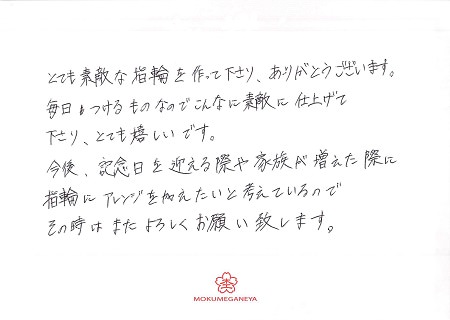 とても素敵な指輪を作って下さり、ありがとうございます。
毎日つけるものなのでこんなに素敵に仕上げて
下さり、とても嬉しいです。
今後、記念日を迎える際や家族が増えた際に
指輪にアレンジを加えたいと考えているので
その時はまたよろしくお願い致します。
MOKUMEGANEYA